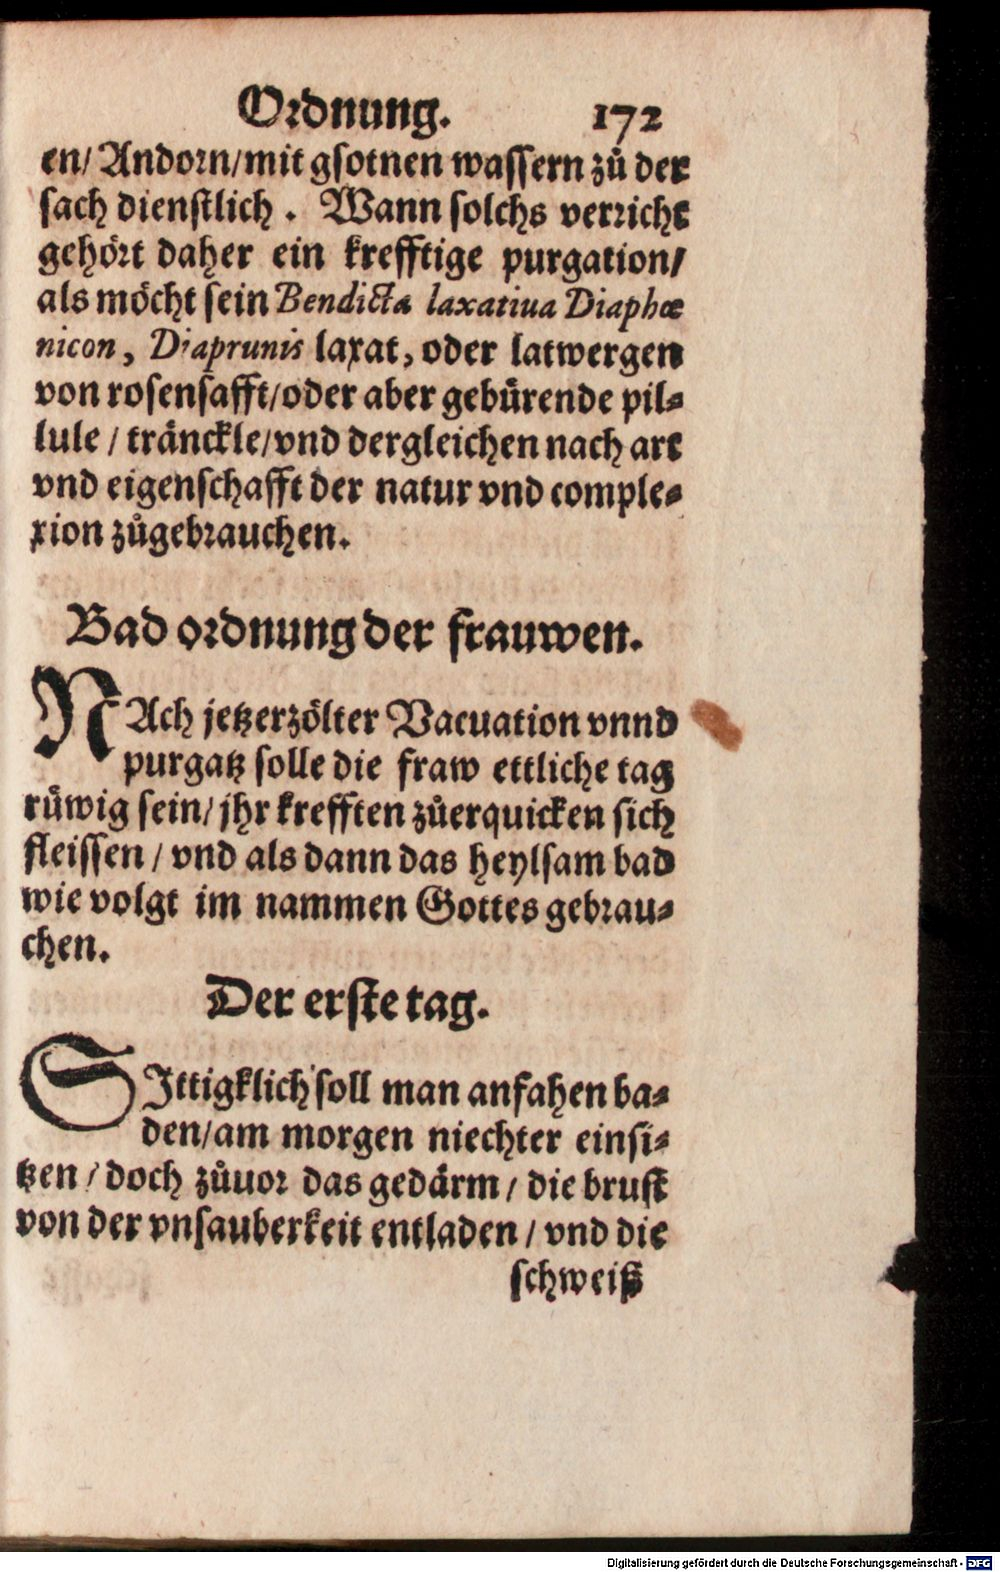 Ordnung. 172
en/ Andorn/mit gsotnen wassern zů der
sach dienstlich. Wann solchs verricht
gehört daher ein krefftige purgation/
als möcht sein Bendicta laxatiua Diaphœ
nicon, Diaprunis laxat, oder latwergen
von rosensafft/oder aber gebürende pil⸗
lule / tränckle/vnd dergleichen nach art
vnd eigenschafft der natur vnd comple⸗
xion zůgebrauchen.
Bad ordnung der frauwen.
NAch jetzerzölter Vacuation vnnd
purgatz solle die fraw ettliche tag
rüwig sein/ jhr krefften zůerquicken sich
fleissen / vnd als dann das heylsam bad
wie volgt im nammen Gottes gebrau⸗
chen.
Der erste tag.
SIttigklich soll man anfahen ba⸗
den/am morgen niechter einsi⸗
tzen / doch zůuor das gedärm / die brust
von der vnsauberkeit entladen / vnd die
schweiß
Digitalisierung gefördert durch die Deutsche Forschungsgemeinschaft - DFG